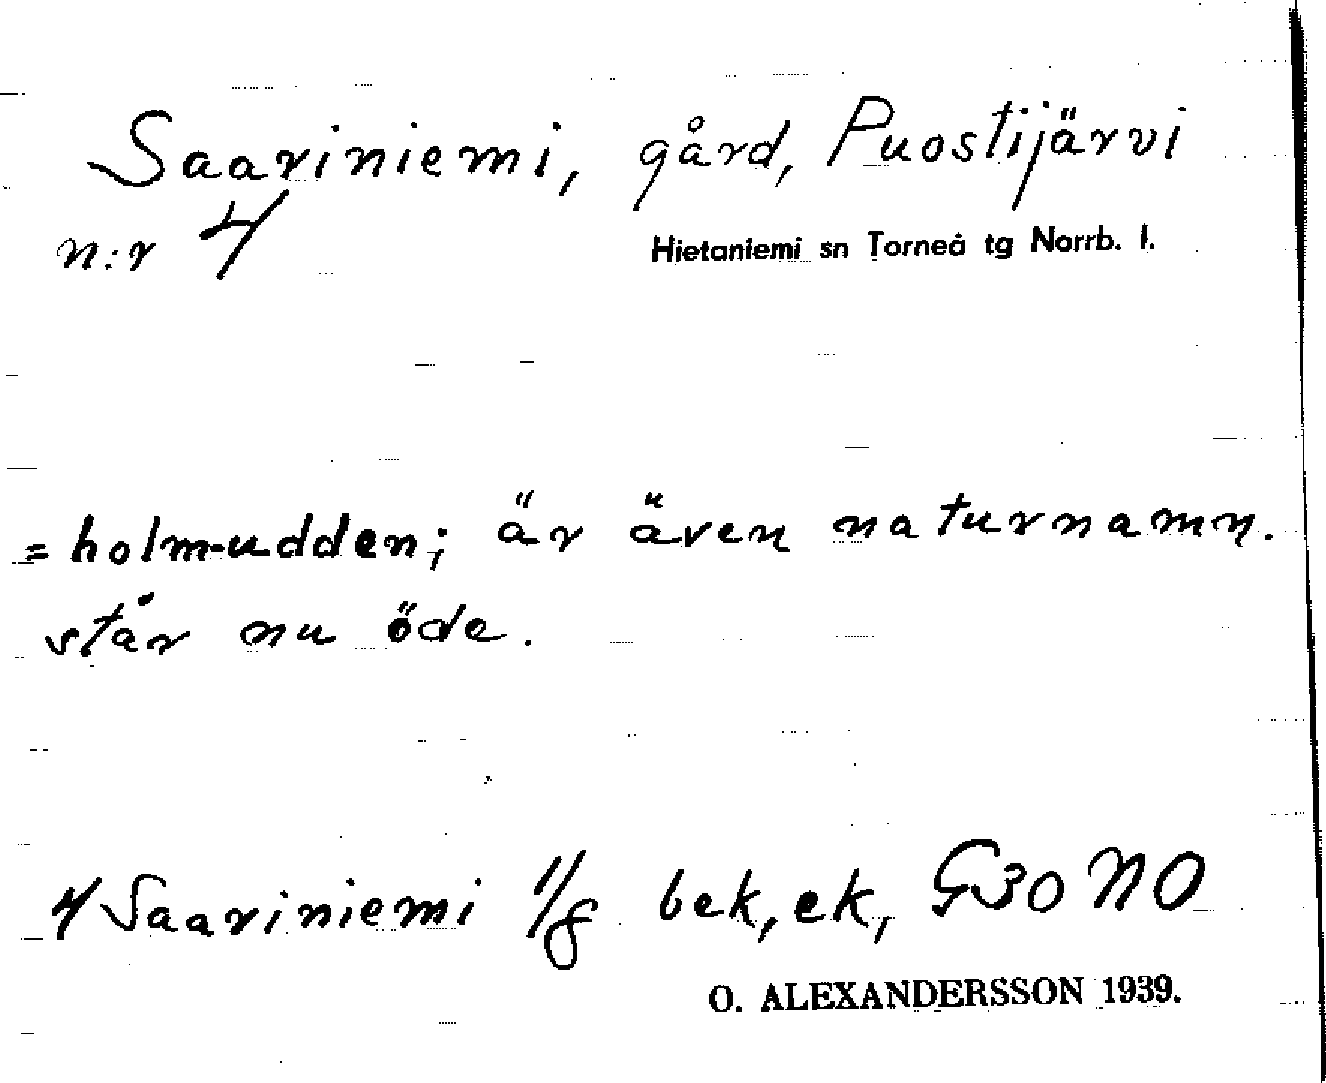 Saariniemi, gård, Puostijärvi
n:r 4
Hietaniemi sn Torneå tg Norrb. l.
= holm-udden; är även naturnamn.
står nu öde.
4 Saariniemi 1/8 bek, ek, G30 NO
O. ALEXANDERSSON 1939.